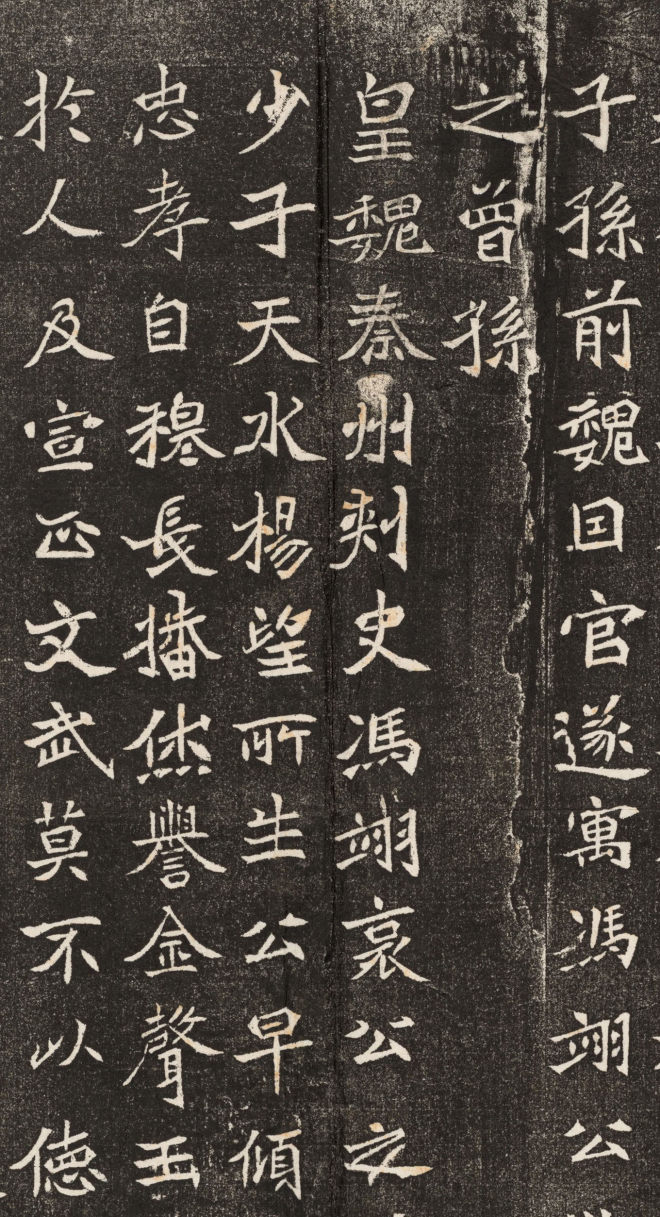 子孫前魏囙官遂寓馮翊公
之曾孫
皇魏秦州刾史馮翊哀公之
少子天水楊望所生公早傾
忠孝自穆長播烋譽金聲玉
於人及宣正文武莫不以德